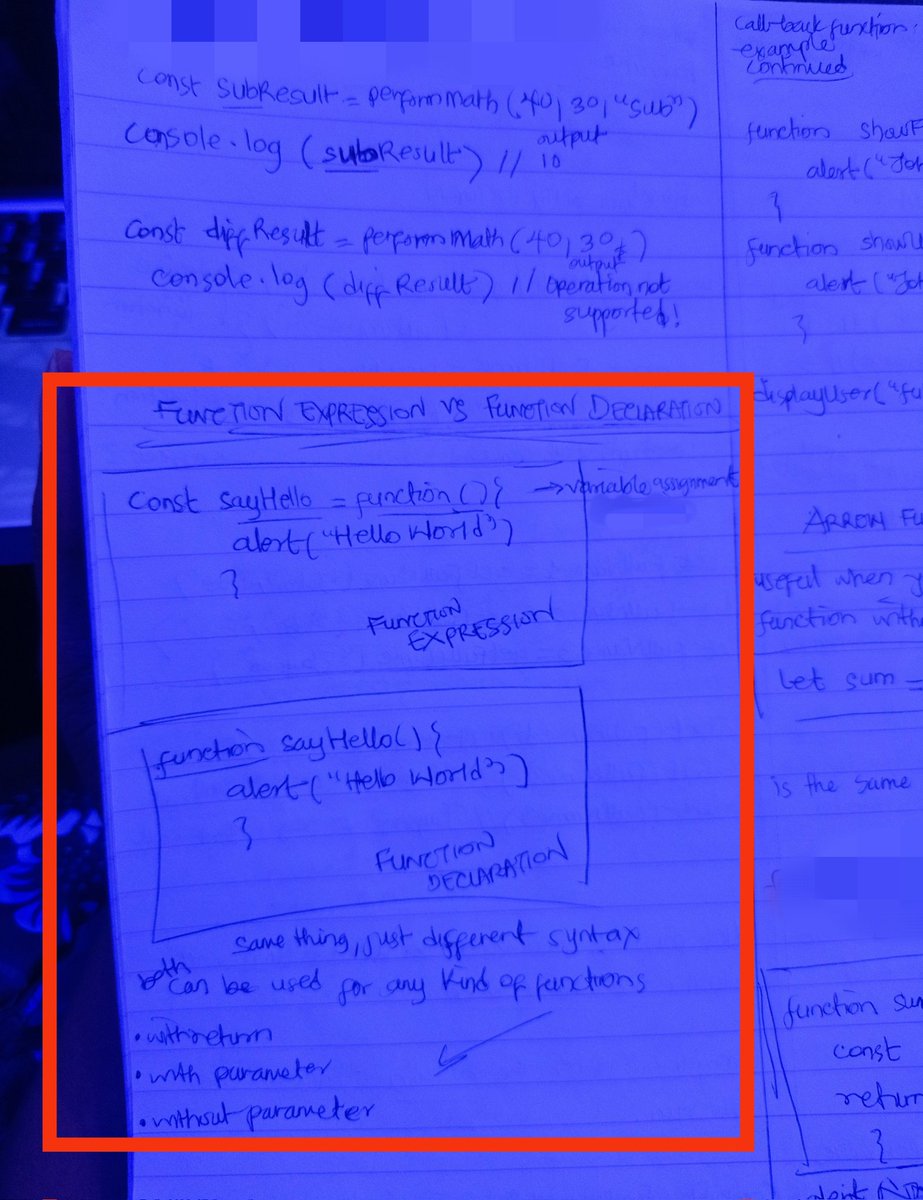 const subResult = performMath(40, 30, "sub")
Console.log (subResult) // output 10
Const diffResult = performMath(40, 30, )
Console.log (diffResult) // output Operation not supported!
FUNCTION EXPRESSION VS FUNCTION DECLARATION
Const sayHello = function () { → variable assignment
alert("Hello World")
}
FUNCTION
EXPRESSION
function sayHello() {
alert("Hello World")
}
FUNCTION
DECLARATION
same thing, just different syntax
both can be used for any kind of functions
• with return
• with parameter
• without parameter
Call-back function:
example
continued
function show
alert("Joh
}
function show
alert("Joh
}
displayUser("fu
ARROW FU
useful when y
function with
Let sum =
is the same
function sum
const
return
}
alert